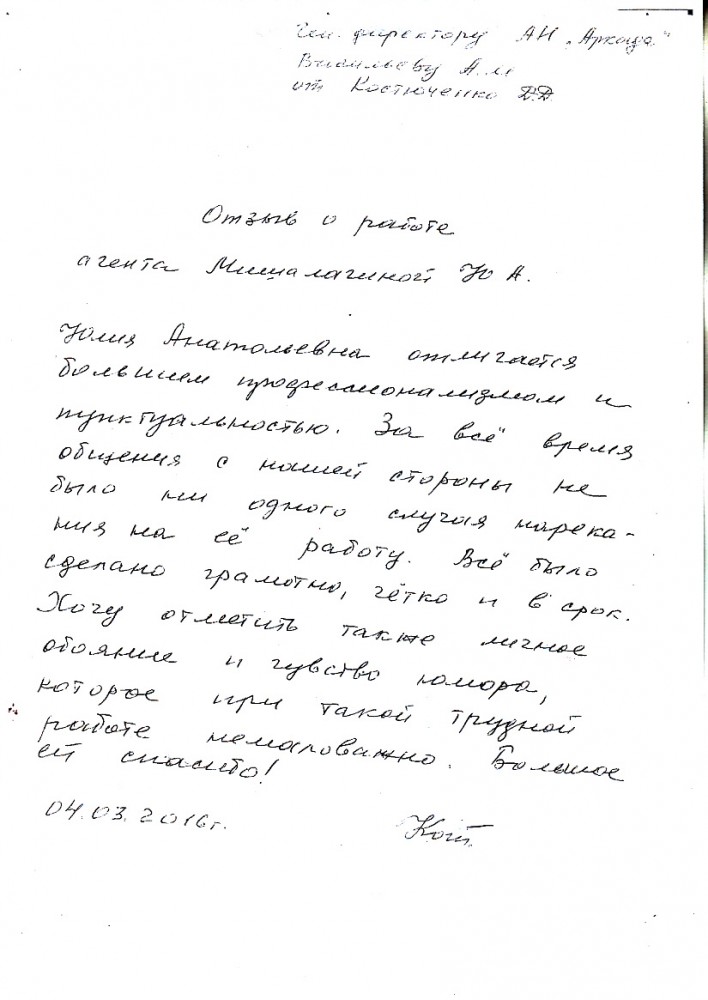 Ген. директору АН „Аркада"
Васильеву А.М
от Костюченко Д.Д.
Отзыв о работе
агента Мишалагиной Ю А.
Юлия Анатольевна отличается
большим профессионализмом и
пунктуальностью. За всё время
общения с нашей стороны не
было ни одного случая нарека-
ния на её работу. Всё было
сделано грамотно, чётко и в срок.
Хочу отметить также личное
обояние и чувство юмора,
которое при такой трудной
работе немаловажно. Большое
ей спасибо!
04.03.2016г.